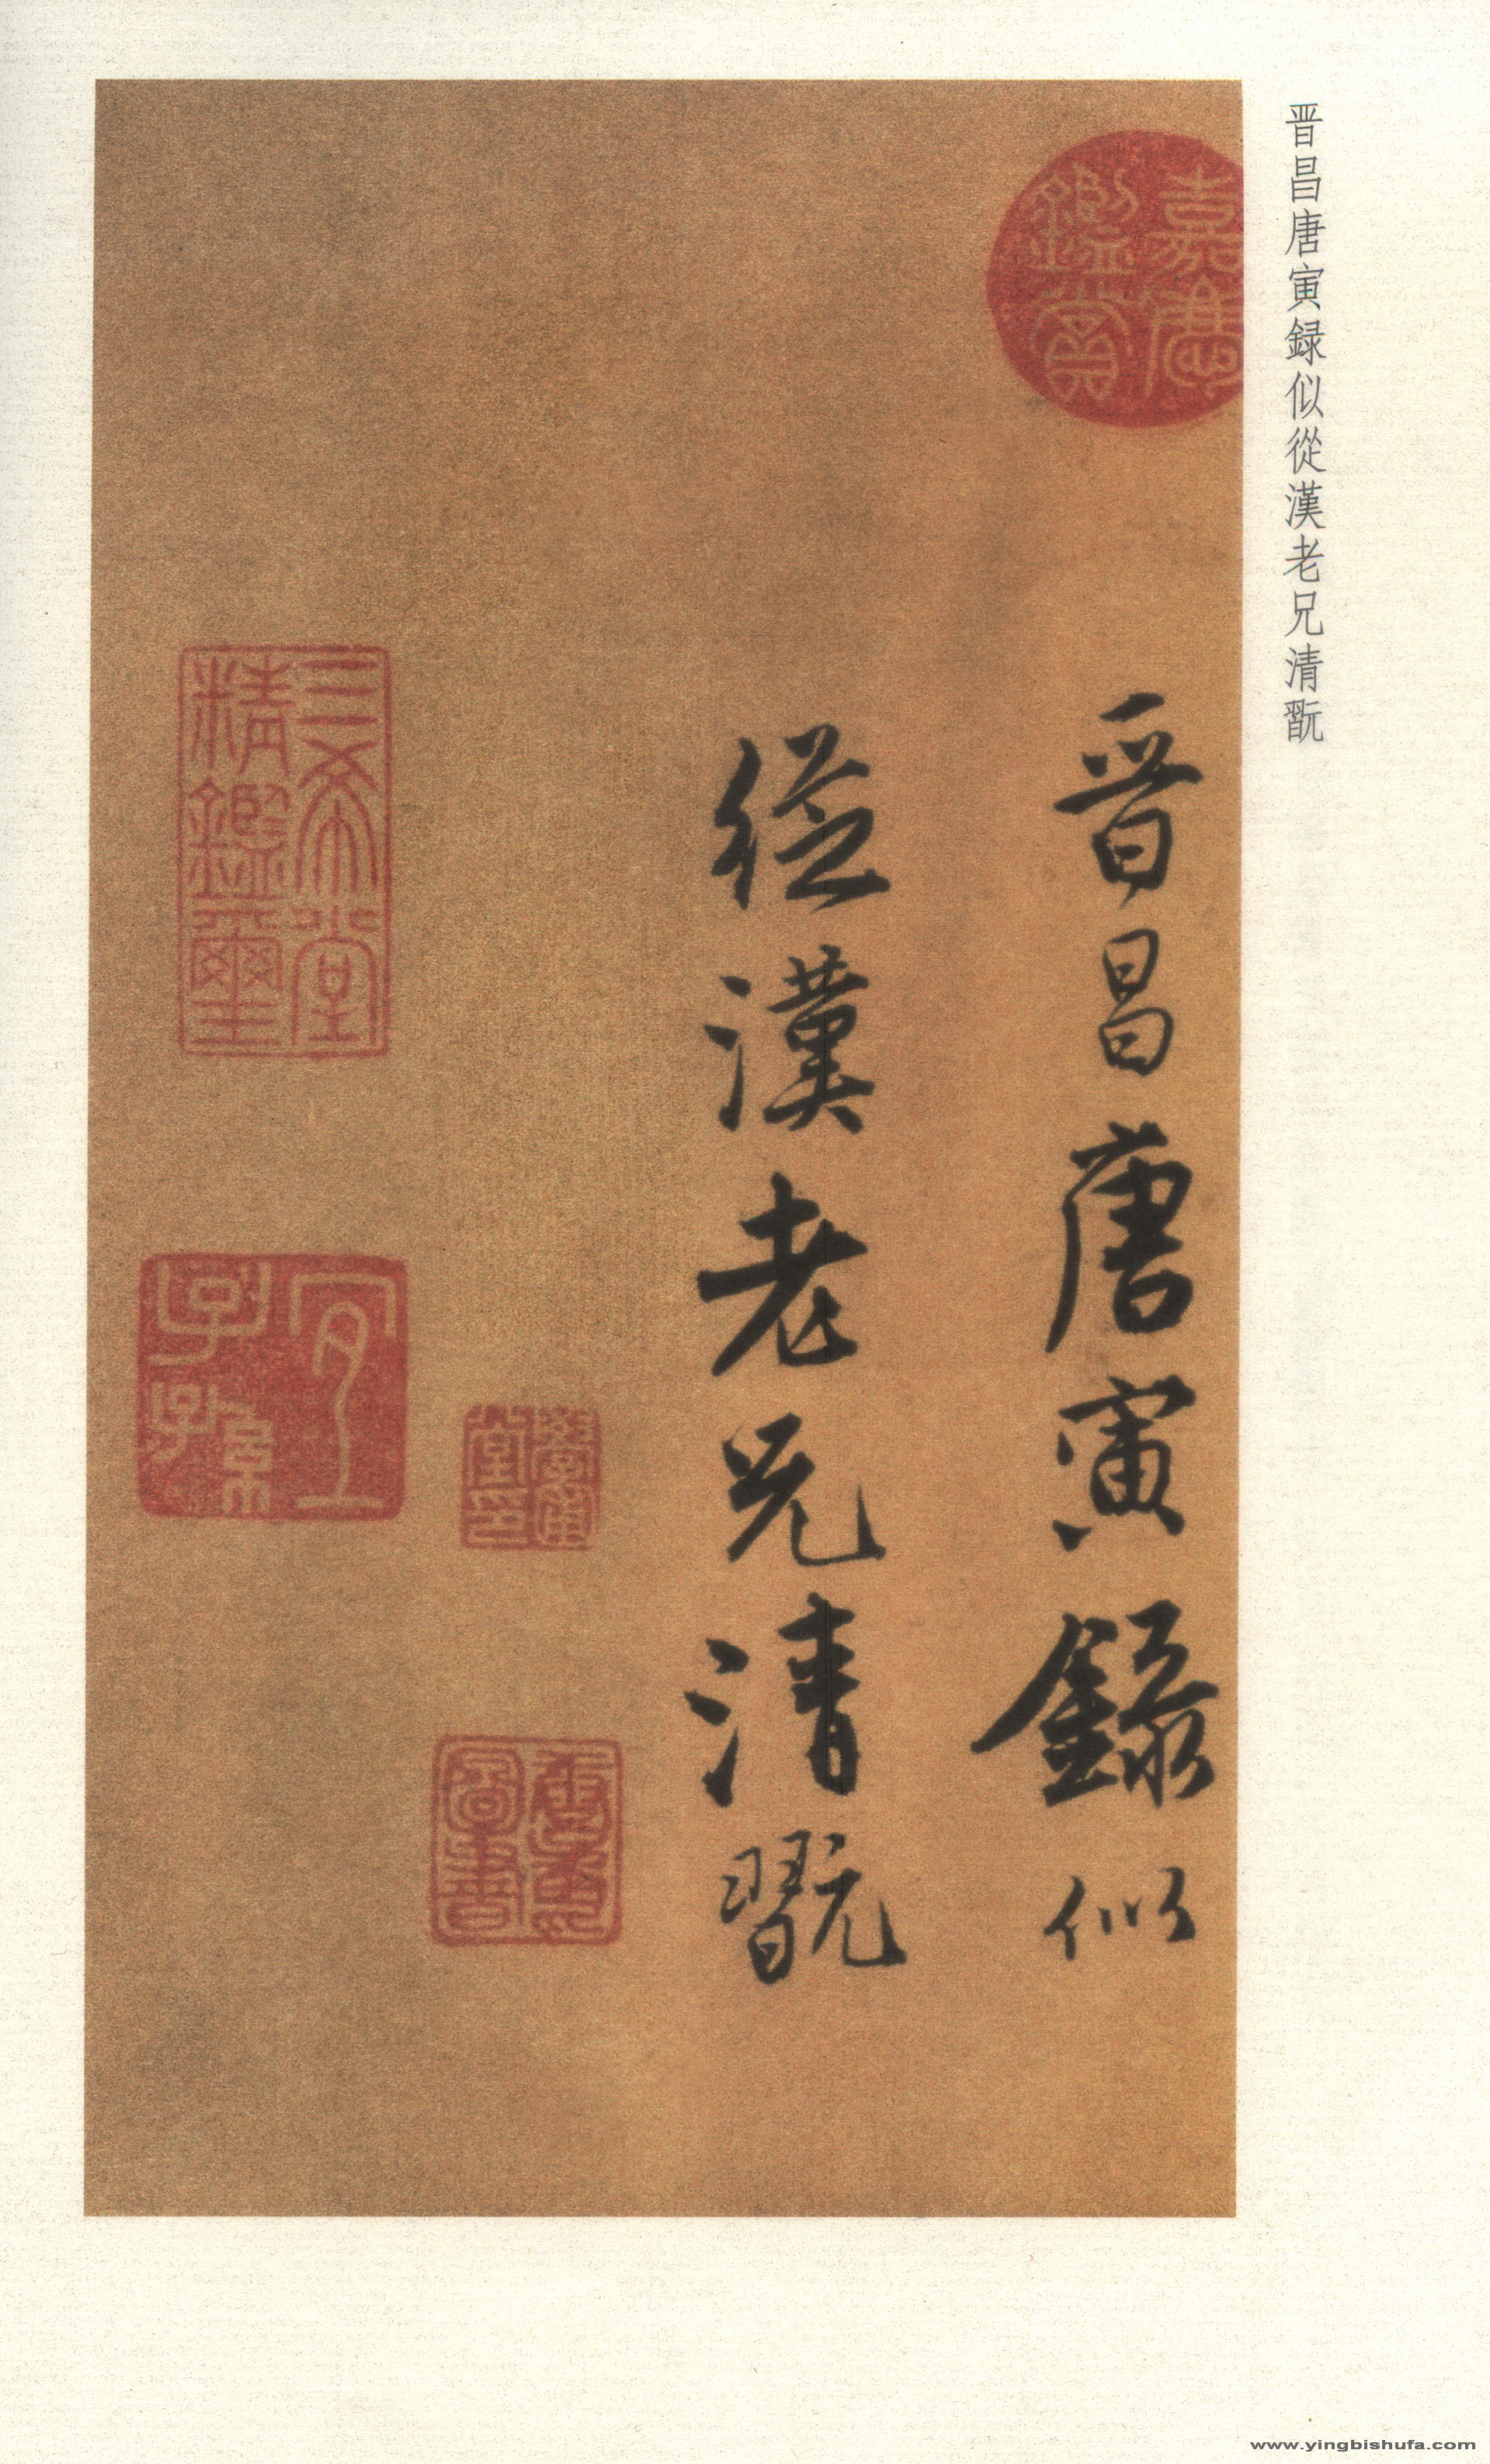 晋昌唐寅録似從漢老兄清翫
嘉慶
鑑賞
晋昌唐寅録似
從漢老兄清翫
三希堂
精鑑璽
宜
子孫
圖書
www.yingbishufa.com